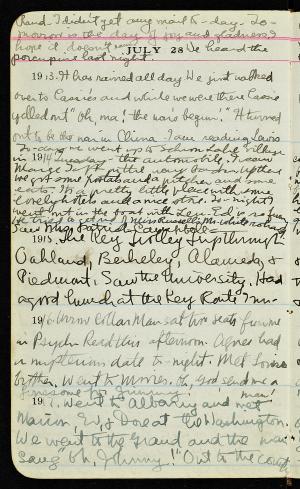 Rand. I didn't get any mail to-day. To-
morrow is the day of joy and gladness. I
hope it doesn't rain. We heard the
JULY 28
porcupine last night.
1913. It has rained all day. We just walked
over to Cassie's and while we were there Cassie
yelled out "Oh, ma! the war's begun." It turned
out to be the war in China. I am reading Lewis
To-day we went up to Schroon Lake Village
in 1914 Tuesday - the automobile. I saw
We got some and a pitcher and some
eats. It's a pretty little place with some
lovely hotels and a nice store. To-night I
went out in the boat with
Saw Miss
1915. The Key Trolley Trip through
Oakland, Berkeley, Alameda &
Piedmont. Saw the University. Had
a good lunch at the Key Route Inn.
1916 Arrow Collar Man sat two seats from me
in Psych. Read this afternoon. Agnes had
a mysterious date to-night. Met
brother. Went to Movies. Oh, God send me a
man!
1917. Went to Albany and met
Marion W. & Dore at the Washington.
We went to the Grand and the man
sang "Oh, Johnny!" Out to the